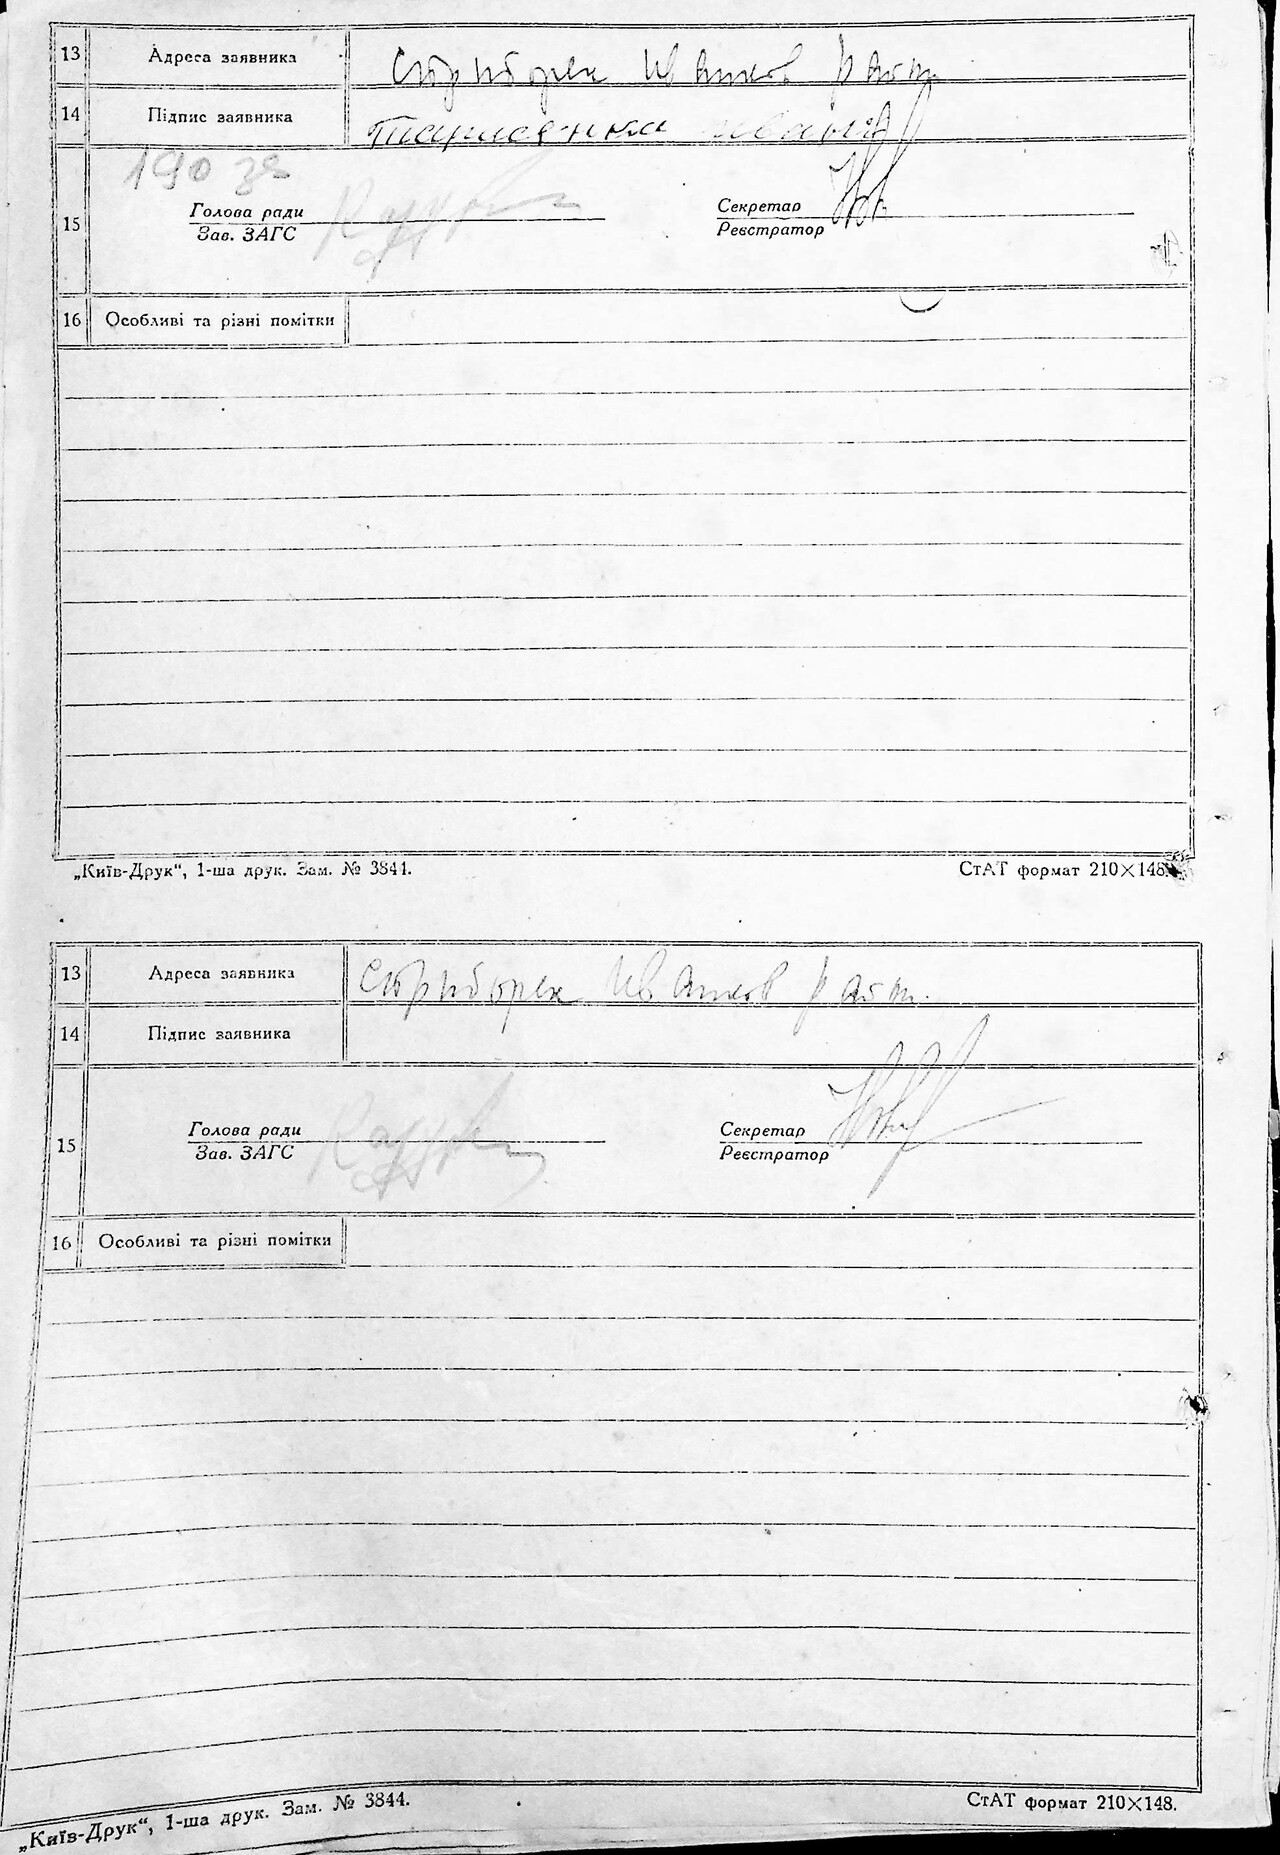 13 Адреса заявника Стриборек Иванков райт.
14 Підпис заявника
190 зв
Голова ради Секретар
15 Зав. ЗАГС Реєстратор
16 Особливі та різні помітки
„Київ-Друк“, 1-ша друк. Зам. № 3844. СтАТ формат 210×148.
13 Адреса заявника Стриборек Иванков райт.
14 Підпис заявника
Голова ради Секретар
15 Зав. ЗАГС Реєстратор
16 Особливі та різні помітки
„Київ-Друк“, 1-ша друк. Зам. № 3844. СтАТ формат 210×148.